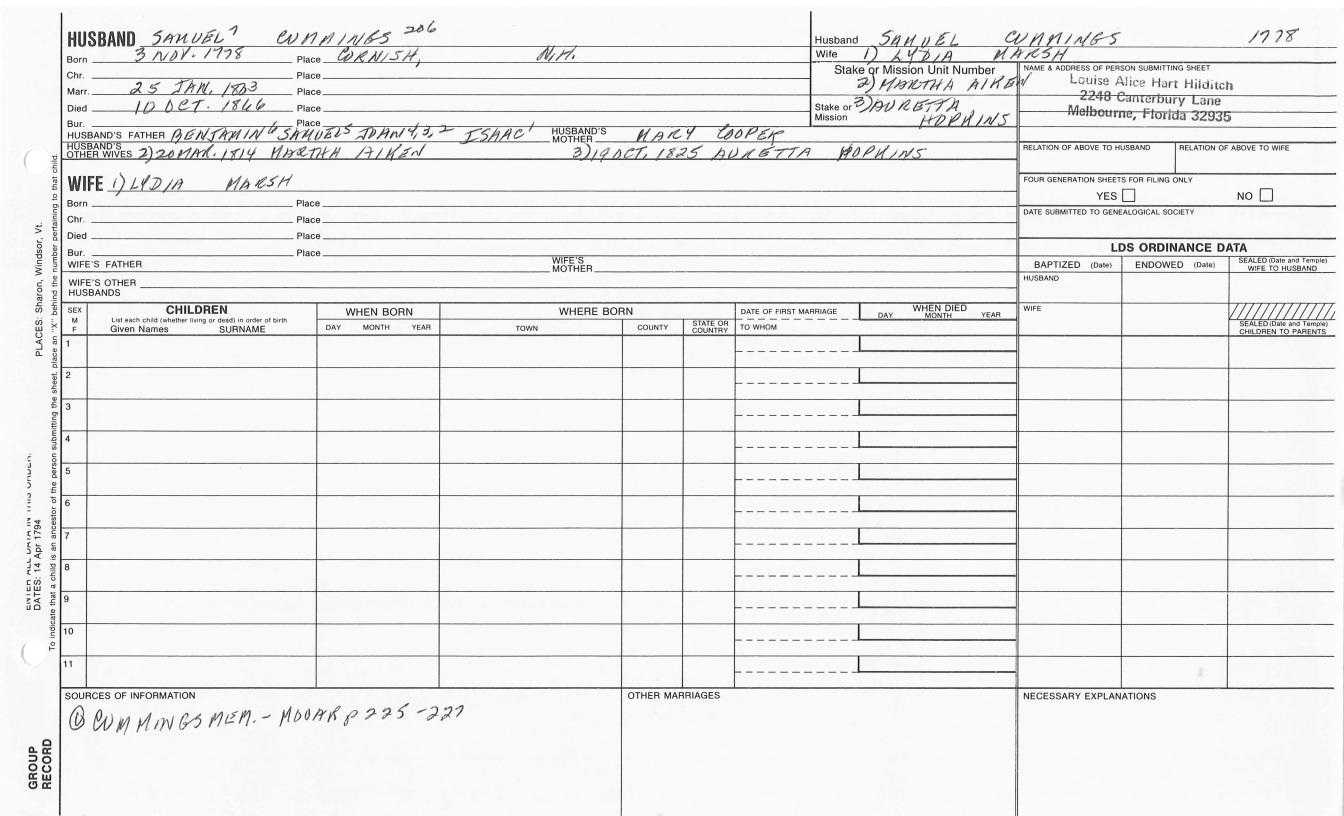 HUSBAND SAMUEL⁷ CUMMINGS 206
Born 3 NOV. 1778 Place CORNISH, N.H.
Chr. Place
Marr. 25 JAN, 1803 Place
Died 10 OCT. 1866 Place
Bur. Place
HUSBAND'S FATHER BENJAMIN⁶ SAMUEL⁵ JOHN⁴,³,² ISAAC¹ HUSBAND'S MOTHER MARY COOPER
HUSBAND'S OTHER WIVES 2) 20 MAR. 1814 MARTHA AIKEN 3) 19 OCT, 1825 AURETTA HOPKINS
Husband SAMUEL CUMMINGS 1778
Wife 1) LYDIA MARSH
Stake or Mission Unit Number
2) MARTHA AIKEN
Stake or Mission 3) AURETTA
HOPKINS
NAME & ADDRESS OF PERSON SUBMITTING SHEET
Louise Alice Hart Hilditch
2248 Canterbury Lane
Melbourne, Florida 32935
RELATION OF ABOVE TO HUSBAND RELATION OF ABOVE TO WIFE
FOUR GENERATION SHEETS FOR FILING ONLY
YES NO
DATE SUBMITTED TO GENEALOGICAL SOCIETY
WIFE 1) LYDIA MARSH
Born Place
Chr. Place
Died Place
Bur. Place
WIFE'S FATHER WIFE'S MOTHER
WIFE'S OTHER HUSBANDS
LDS ORDINANCE DATA
BAPTIZED (Date) ENDOWED (Date) SEALED (Date and Temple) WIFE TO HUSBAND
HUSBAND
WIFE
SEALED (Date and Temple) CHILDREN TO PARENTS
SEX M F
CHILDREN
List each child (whether living or dead) in order of birth
Given Names SURNAME
WHEN BORN
DAY MONTH YEAR
WHERE BORN
TOWN COUNTY STATE OR COUNTRY
DATE OF FIRST MARRIAGE
TO WHOM
WHEN DIED
DAY MONTH YEAR
1
2
3
4
5
6
7
8
9
10
11
SOURCES OF INFORMATION
① CUMMINGS MEM. - MOOAR p 225 - 227
OTHER MARRIAGES
NECESSARY EXPLANATIONS
PLACES: Sharon, Windsor, Vt.
ENTER ALL DATA IN THIS ORDER:
DATES: 14 Apr 1794
To indicate that a child is an ancestor of the person submitting the sheet, place an "X" behind the number pertaining to that child.
GROUP
RECORD